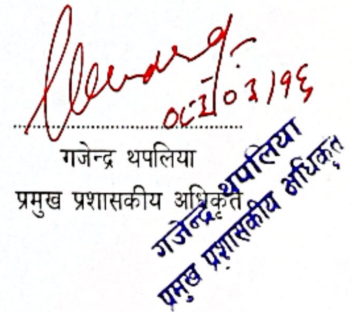 गजेन्द्र थपलिया
प्रमुख प्रशासकीय अधिकृत
गजेन्द्र थपलिया
प्रमुख प्रशासकीय अधिकृत